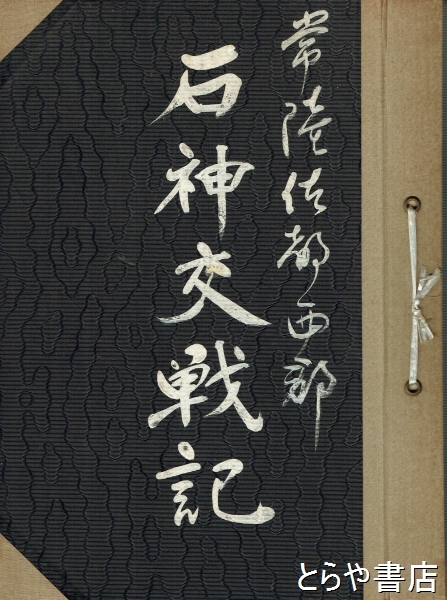 常陸佐都西郡
石神交戦記
とらや書店